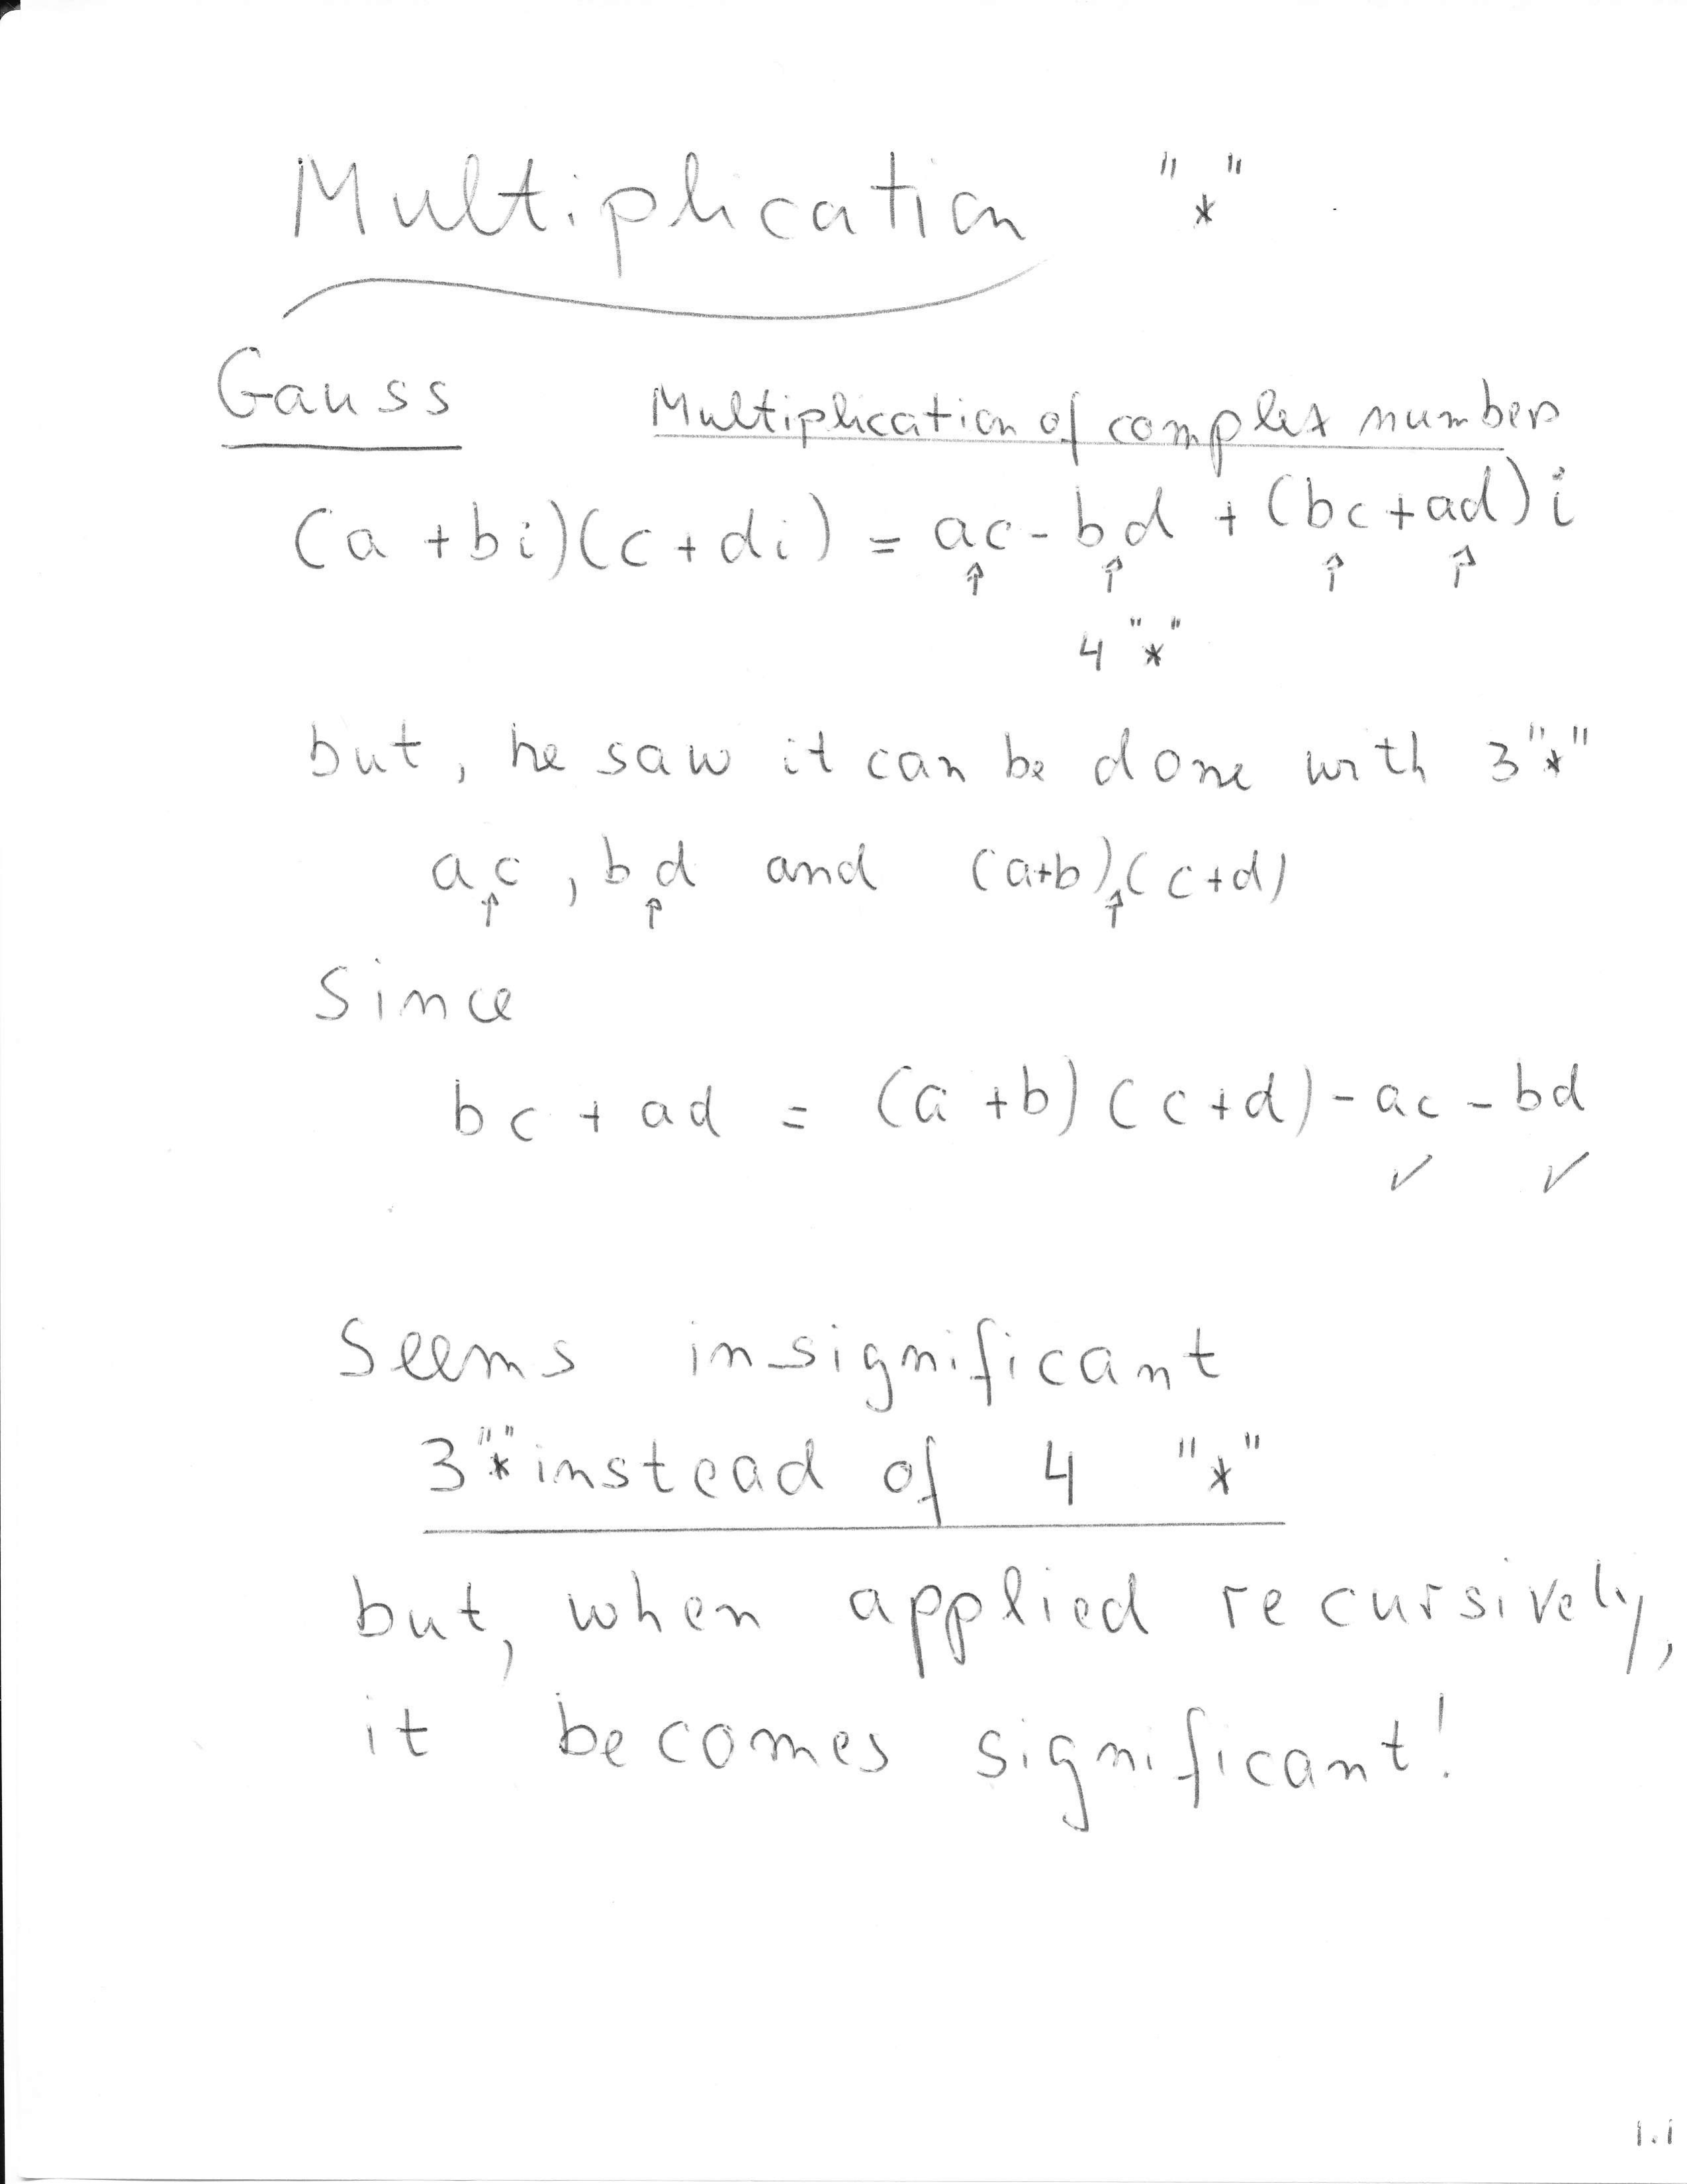 Multiplication "*"
Gauss Multiplication of complex numbers
(a + bi)(c + di) = ac - bd + (bc + ad) i
↑ ↑ ↑ ↑
4 "*"
but, he saw it can be done with 3 "*"
ac, bd and (a+b)(c+d)
↑ ↑ ↑
Since
bc + ad = (a + b)(c + d) - ac - bd
✓ ✓
Seems insignificant
3 "*" instead of 4 "*"
but, when applied recursively,
it becomes significant!
1.1